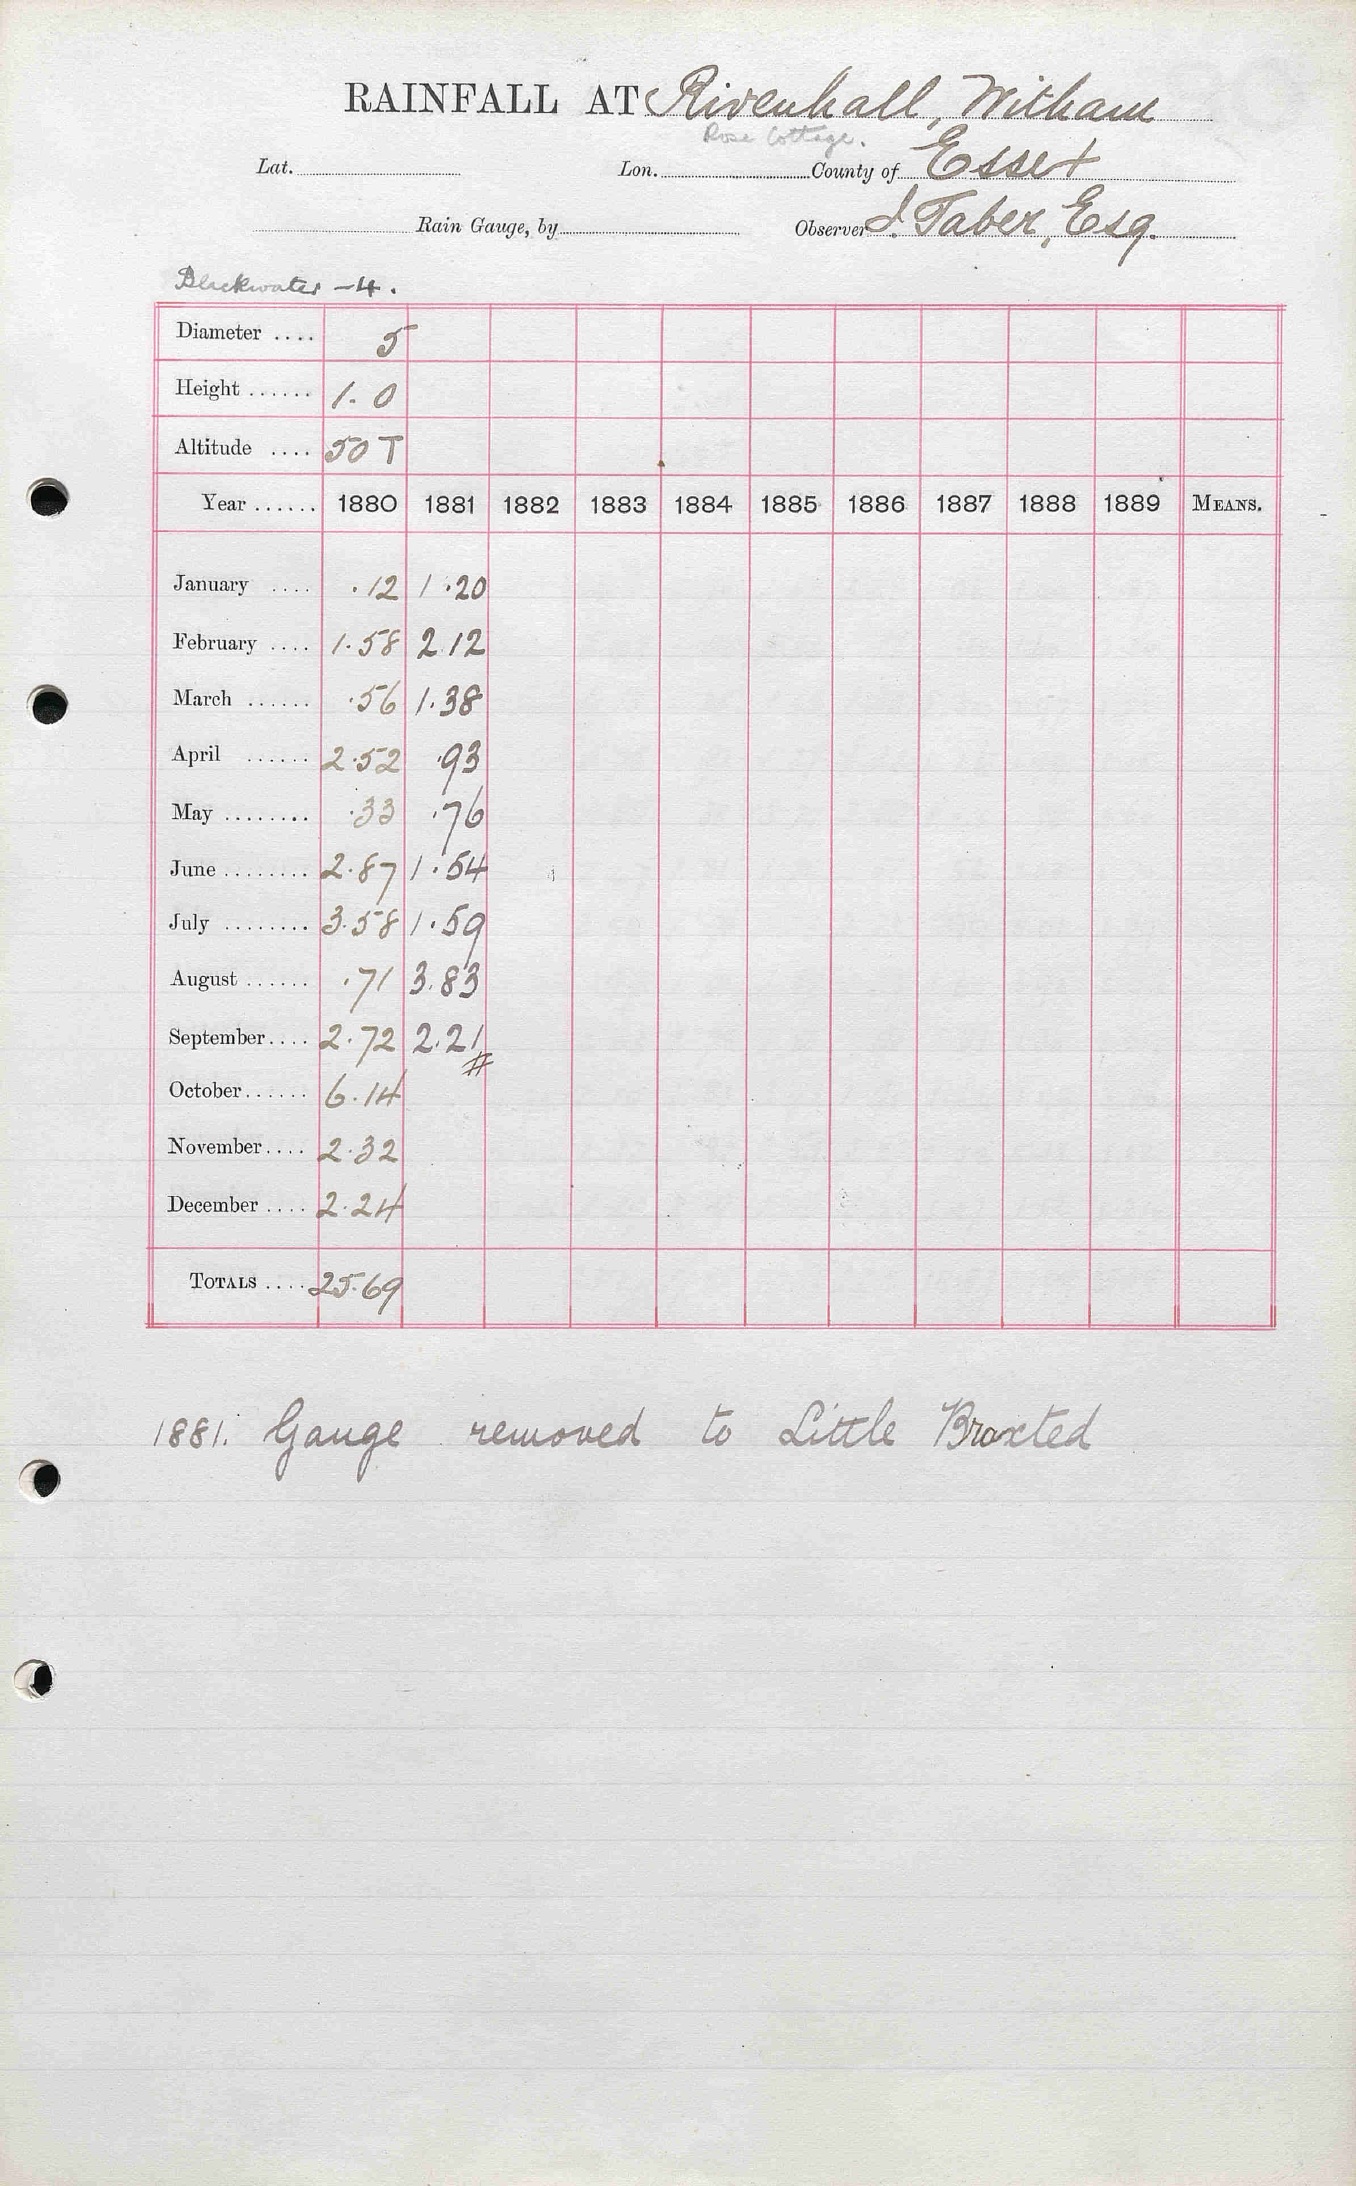 RAINFALL AT Rivenhall, Witham
Rose Cottage.
Lat. Lon. County of Essex
Rain Gauge, by Observer J. Taber, Esq.
Blackwater - 4.
Diameter .... 5
Height ...... 1. 0
Altitude .... 50 T
Year ...... 1880 1881 1882 1883 1884 1885 1886 1887 1888 1889 MEANS.
January .... .12 1.20
February .... 1.58 2.12
March ...... .56 1.38
April ...... 2.52 .93
May ........ .33 .76
June ........ 2.87 1.54
July ........ 3.58 1.59
August ...... .71 3.83
September .... 2.72 2.21
#
October ...... 6.14
November .... 2.32
December .... 2.24
TOTALS .... 25.69
1881. Gauge removed to Little Braxted